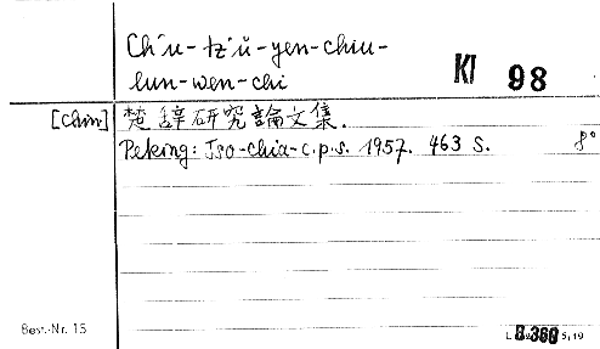 Ch'u-tz'ŭ-yen-chiu-
lun-wen-chi
KI 98
[Chin] 楚辞研究論文集.
Peking: Tso-chia-c.p.s. 1957. 463 S. 8°
Best.-Nr. 15
8.360 5,19